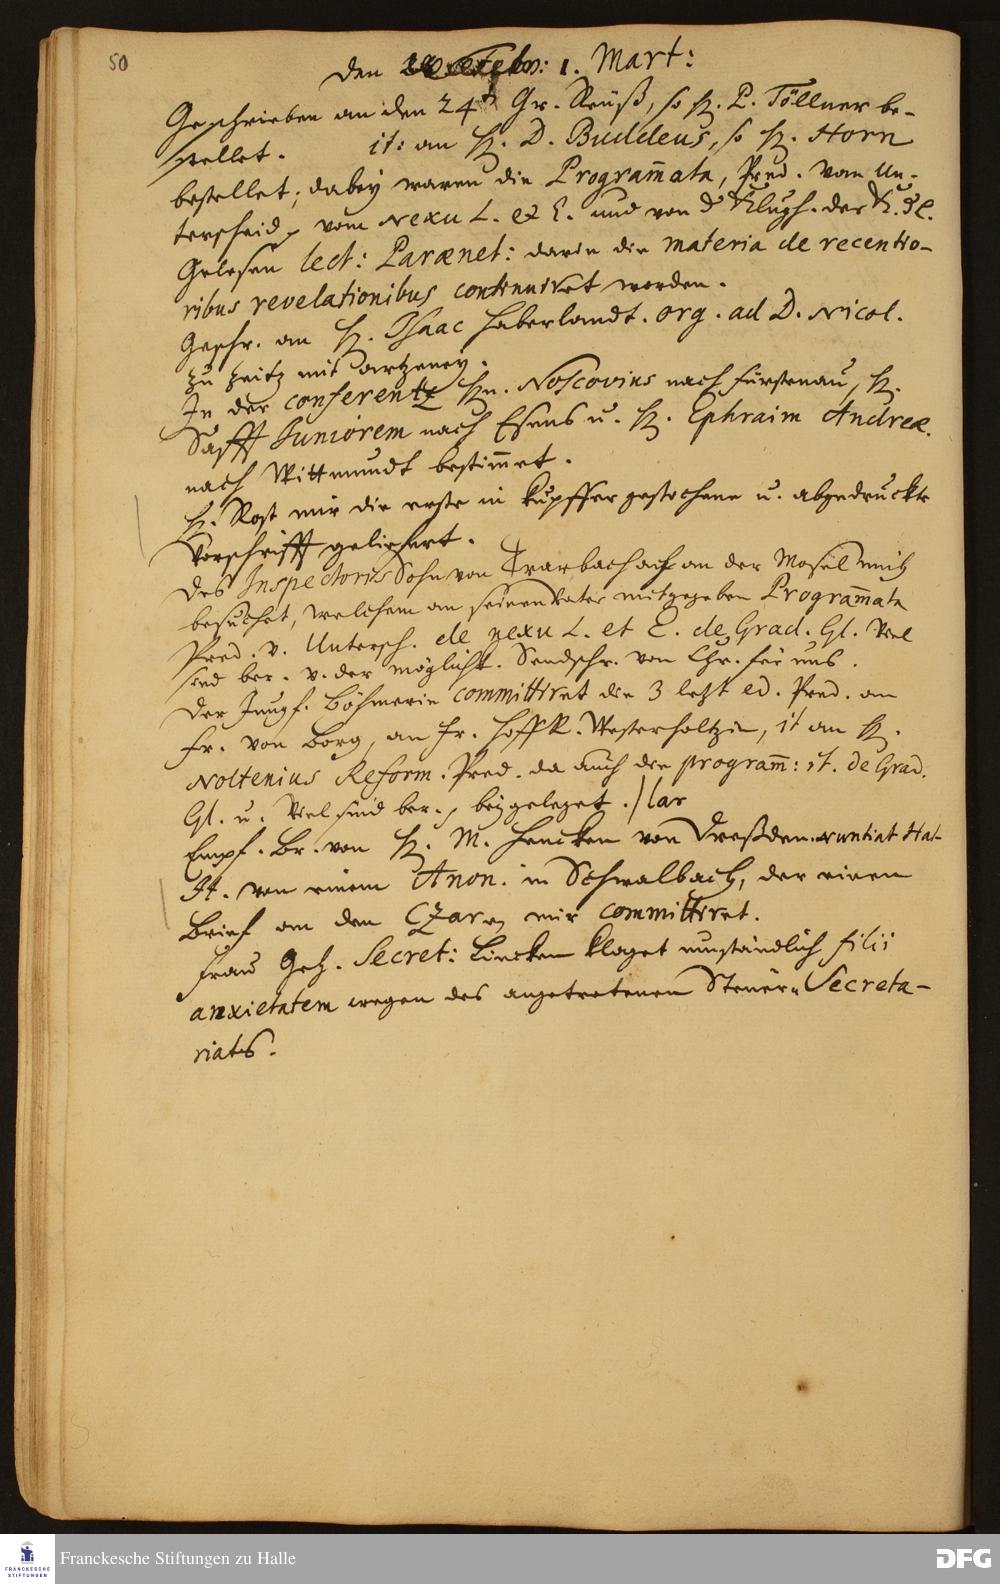 50
den 1. Mart:
Geschrieben an den 24t Gr. Reuß, so H. P. Töllner be-
stellet. it: an H. D. Buddeus, so H. Horn
bestellet; dabey waren die Programmata, Pred. vom Un-
terscheid, vom Nexu L. et E. und von d Klugh. der K. d L.
Gelesen lect: Parænet: darin die materia de recentio-
ribus revelationibus continuiret worden.
Geschr. an H. Isaac Haberlandt. org. ad D. Nicol.
zu Zeitz mit artzeney.
In der conferentz Hn. Noscovius nach Fürstenau, H.
Safft Juniorem nach Esens u. H. Ephraim Andreæ
nach Wittmundt bestimmet.
H. Rost mir die erste in Kupffer gestochene u. abgedruckte
Vorschrifft geliefert.
Des Inspectoris Sohn von Trarbach an der Mosel mich
besuchet, welchem an seinen Vater mitgegeben Programmata
Pred. v. Untersch. de nexu L. et E. de Grad. Gl. Viel
sind ber. v. der möglichk. Sendschr. von Chr. für uns.
Der Jungf. Böhmerin committiret die 3 letzt ed. Pred. an
Fr. von Borg, an Fr. HoffR. Westerholtzin, it an H.
Noltenius Reform. Pred. da auch die programm: it. de Grad.
Gl. u. Viel sind ber., beygeleget.
Empf. Br. von H. M. Hencken von Dreßden. nuntiat
It. von einem Anon. in Schwalbach, der einen
Brief an den Czaren mir committiret.
Frau Geh. Secret: Lincken klaget umständlich filii
anxietatem wegen des angetretenen Steuer-Secreta-
riats.
FRANCKESCHE
STIFTUNGEN
Franckesche Stiftungen zu Halle
DFG